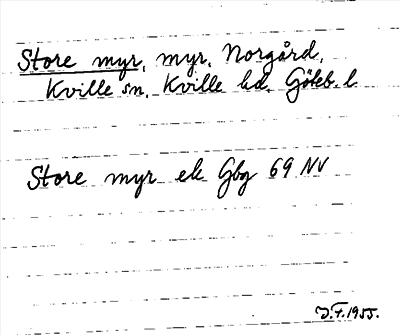 Store myr, myr, Norgård,
Kville sn. Kville hd. Göteb. l
Store myr ek Gbg 69 NV
J.F. 1955.